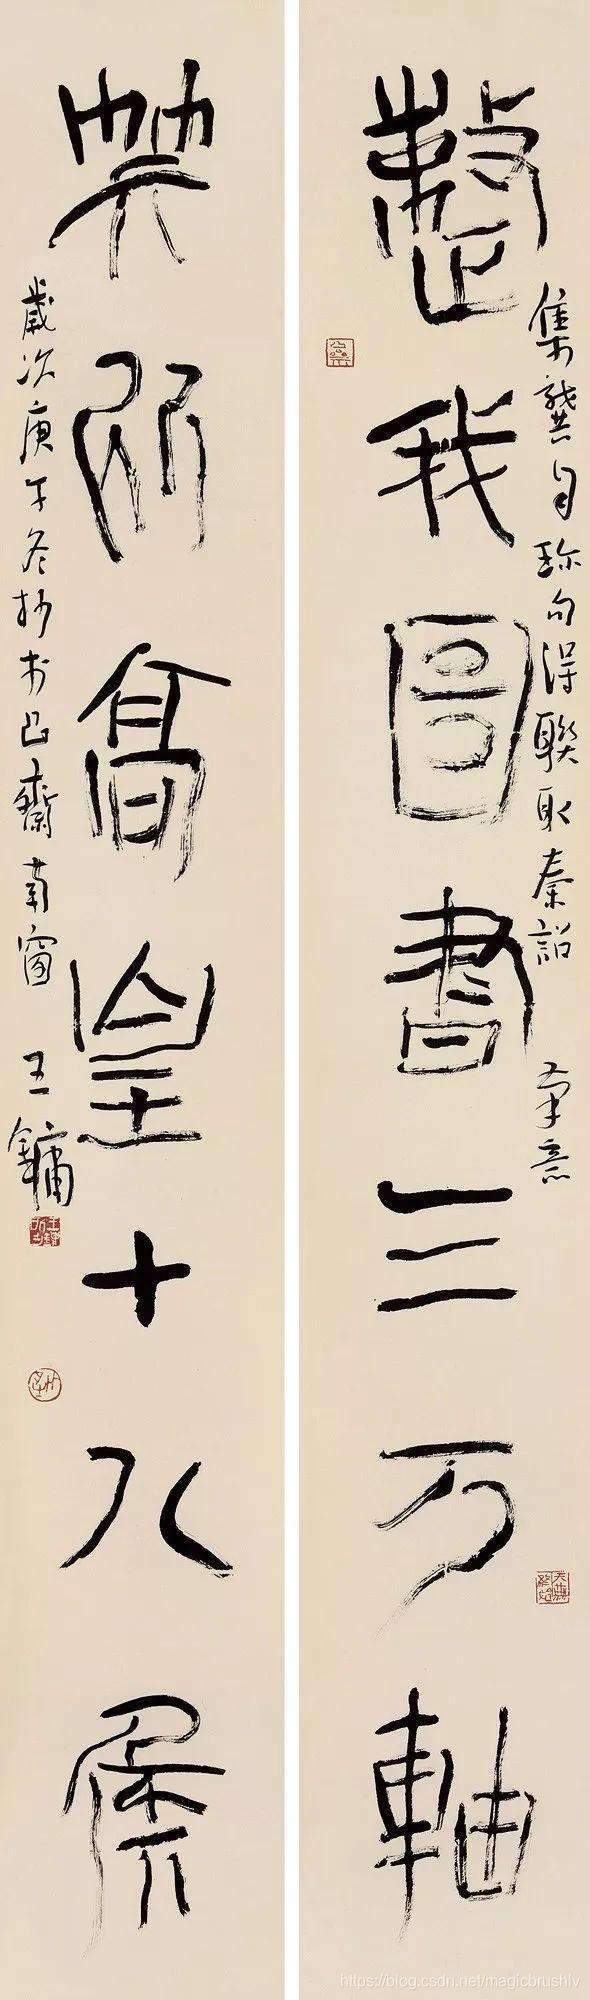 整我圖書三万軸
集龔自珍句得聯取秦詔筆意
高皇十八侯
歲次庚午冬杪於凸齋南窗 王鏞
https://blog.csdn.net/magicbrushlv